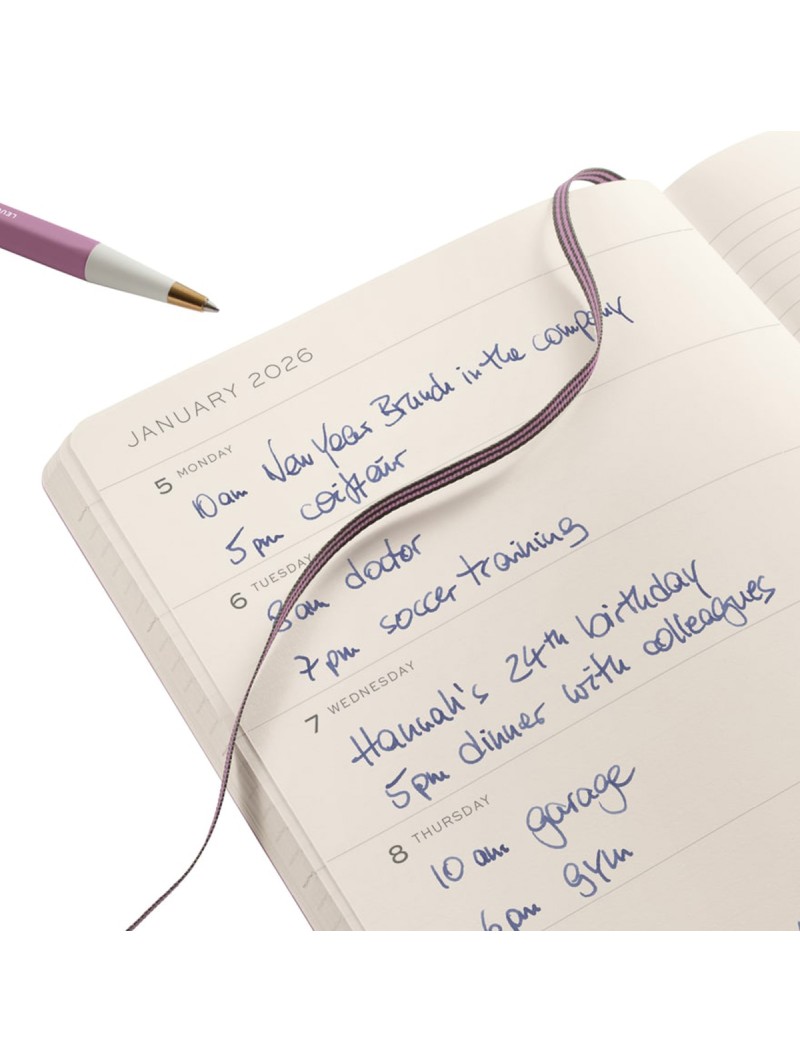 JANUARY 2026
5 MONDAY
10am New Years Brunch in the company
5pm coiffeur
6 TUESDAY
8am doctor
7pm soccer training
7 WEDNESDAY
Hannah's 24th birthday
5pm dinner with colleagues
8 THURSDAY
10 am garage
6pm gym